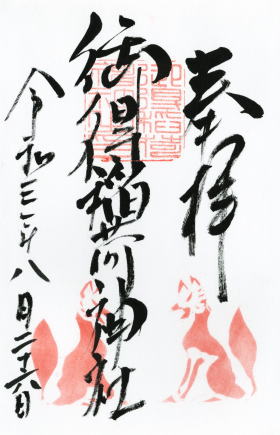 奉拝
御得稲荷神社
令和三年八月二十六日